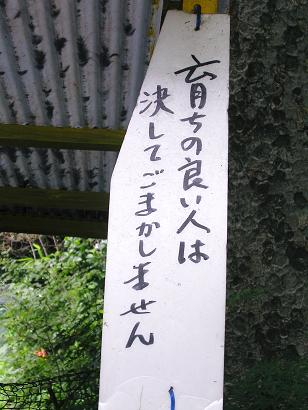 育ちの良い人は
決してごまかしません